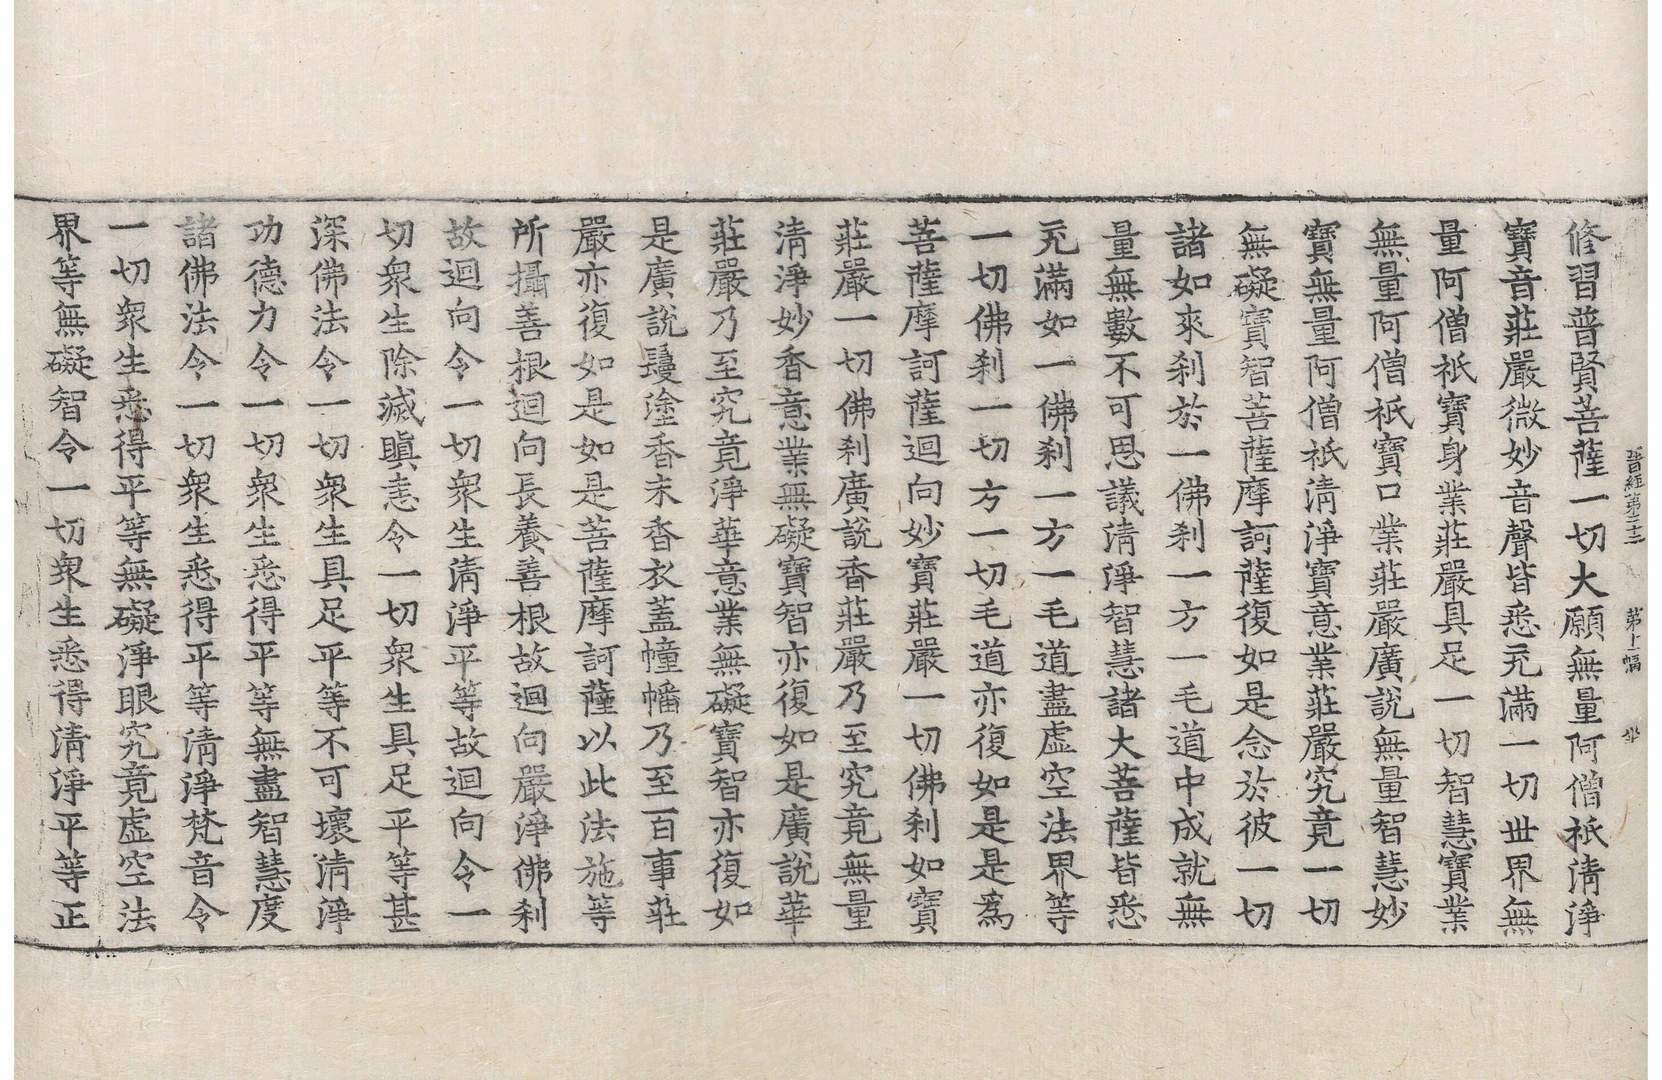 晉經第二十二 第十一幅 坐
修習普賢菩薩一切大願無量阿僧祇清淨
寶音莊嚴微妙音聲皆悉充滿一切世界無
量阿僧祇寶身業莊嚴具足一切智慧寶業
無量阿僧祇寶口業莊嚴廣說無量智慧妙
寶無量阿僧祇清淨寶意業莊嚴究竟一切
無礙寶智菩薩摩訶薩復如是念於彼一切
諸如來刹於一佛刹一方一毛道中成就無
量無數不可思議清淨智慧諸大菩薩皆悉
充滿如一佛刹一方一毛道盡虛空法界等
一切佛刹一切方一切毛道亦復如是是爲
菩薩摩訶薩迴向妙寶莊嚴一切佛刹如寶
莊嚴一切佛刹廣說香莊嚴乃至究竟無量
清淨妙香意業無礙寶智亦復如是廣說華
莊嚴乃至究竟淨華意業無礙寶智亦復如
是廣說鬘塗香末香衣蓋幢幡乃至百事莊
嚴亦復如是如是菩薩摩訶薩以此法施等
所攝善根迴向長養善根故迴向嚴淨佛刹
故迴向令一切衆生清淨平等故迴向令一
切衆生除滅瞋恚令一切衆生具足平等甚
深佛法令一切衆生具足平等不可壞清淨
功德力令一切衆生悉得平等無盡智慧度
諸佛法令一切衆生悉得平等清淨梵音令
一切衆生悉得平等無礙淨眼究竟虛空法
界等無礙智令一切衆生悉得清淨平等正